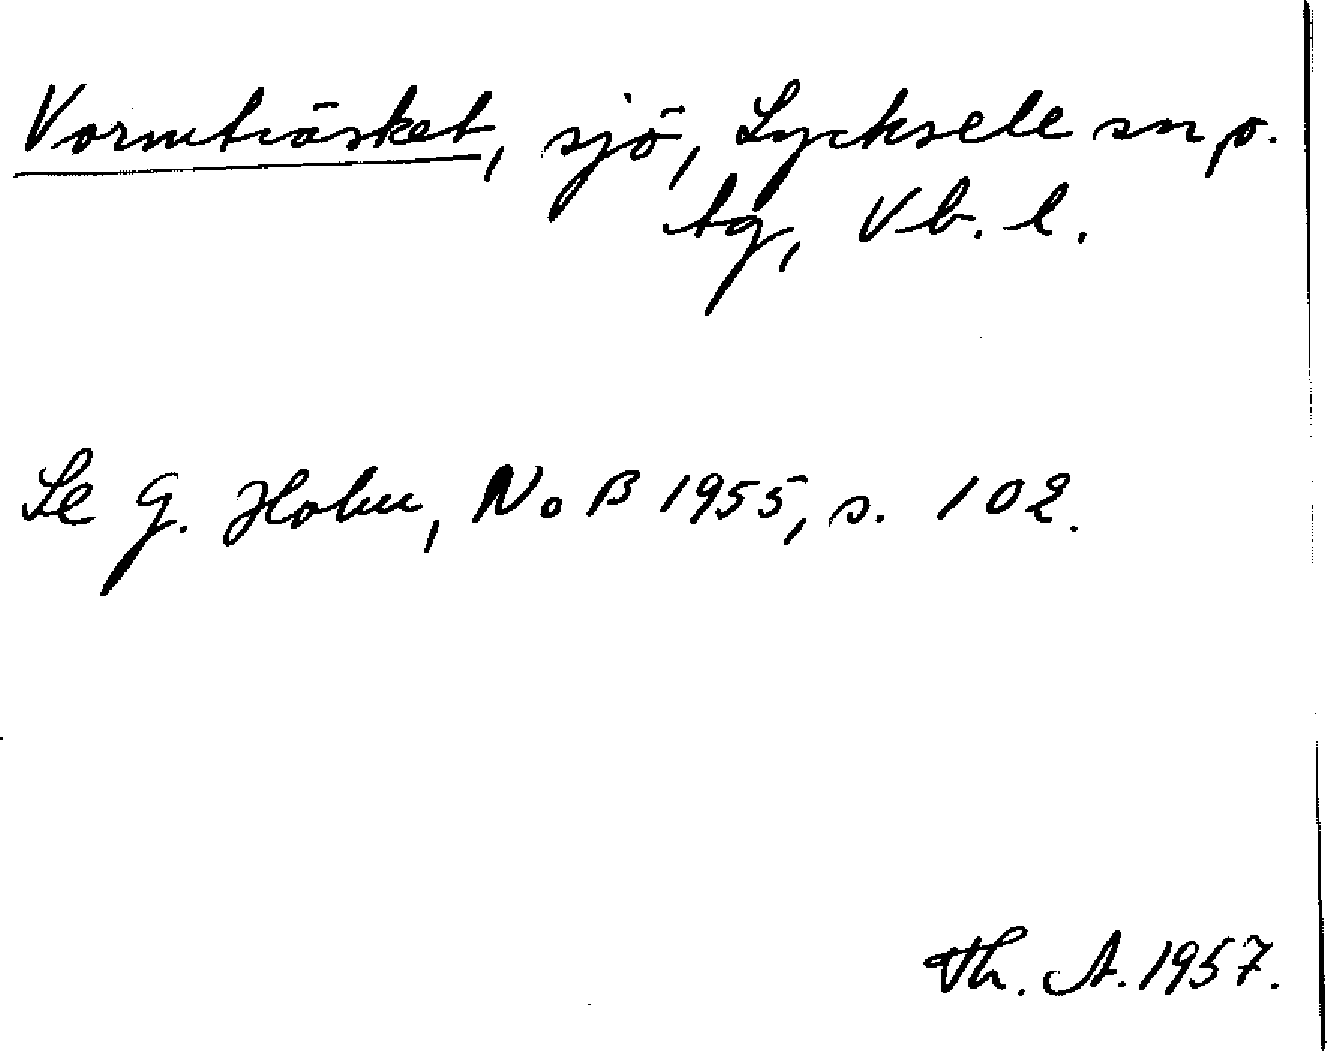 Vormträsket, sjö, Lycksele sn o.
tg, Vb. l.
Se G. Holm, NoB 1955, s. 102.
Th. A. 1957.